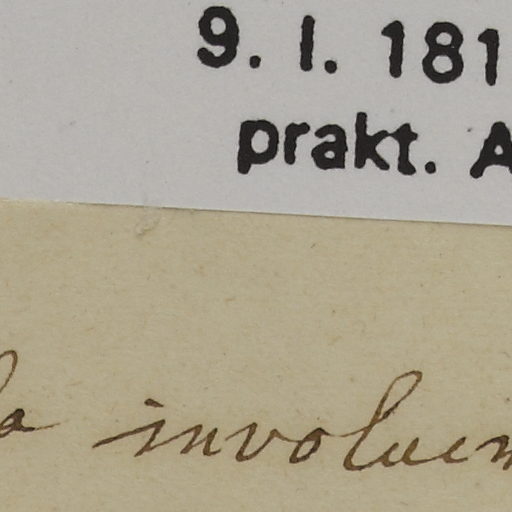 9. I. 181
prakt. A
a involucr